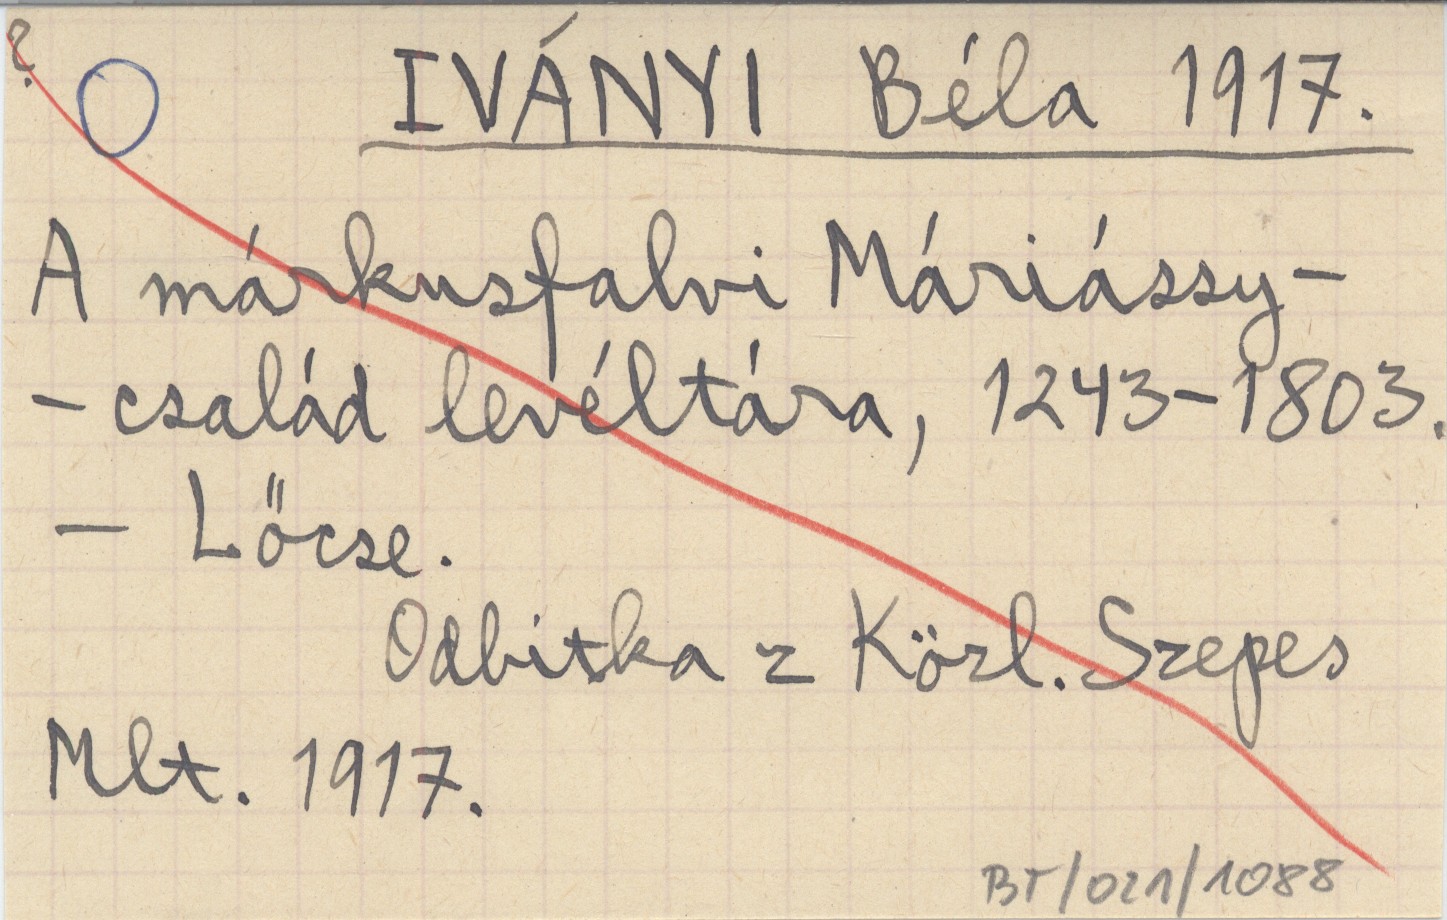 ?
IVÁNYI Béla 1917.
A márkusfalvi Máriássy-
-család levéltára, 1243-1803.
- Lőcse.
Odbitka z Közl. Szepes
Mlt. 1917.
BT/021/1088